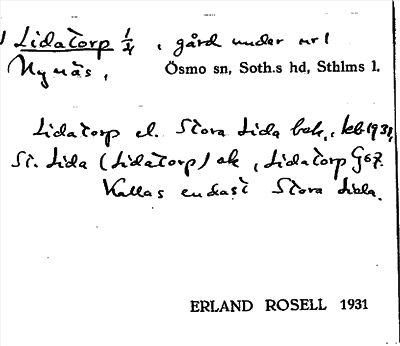 Lidatorp 1/4, gård under nr 1
Nynäs, Ösmo sn, Soth.s hd, Sthlms l.
Lidatorp el. Stora Lida bek., leb 1931,
St. Lida (Lidatorp) ek, Lidatorp G67.
Kallas endast Stora Lida.
ERLAND ROSELL 1931